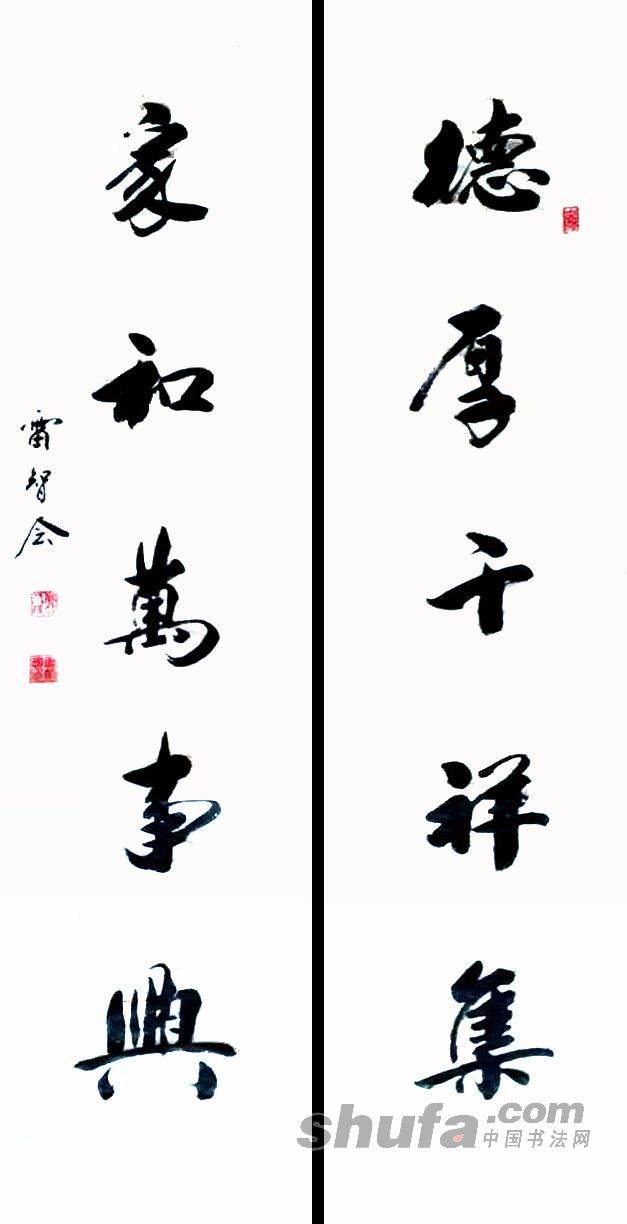 德厚千祥集
家和萬事興
雷智会
shufa.com
中国书法网